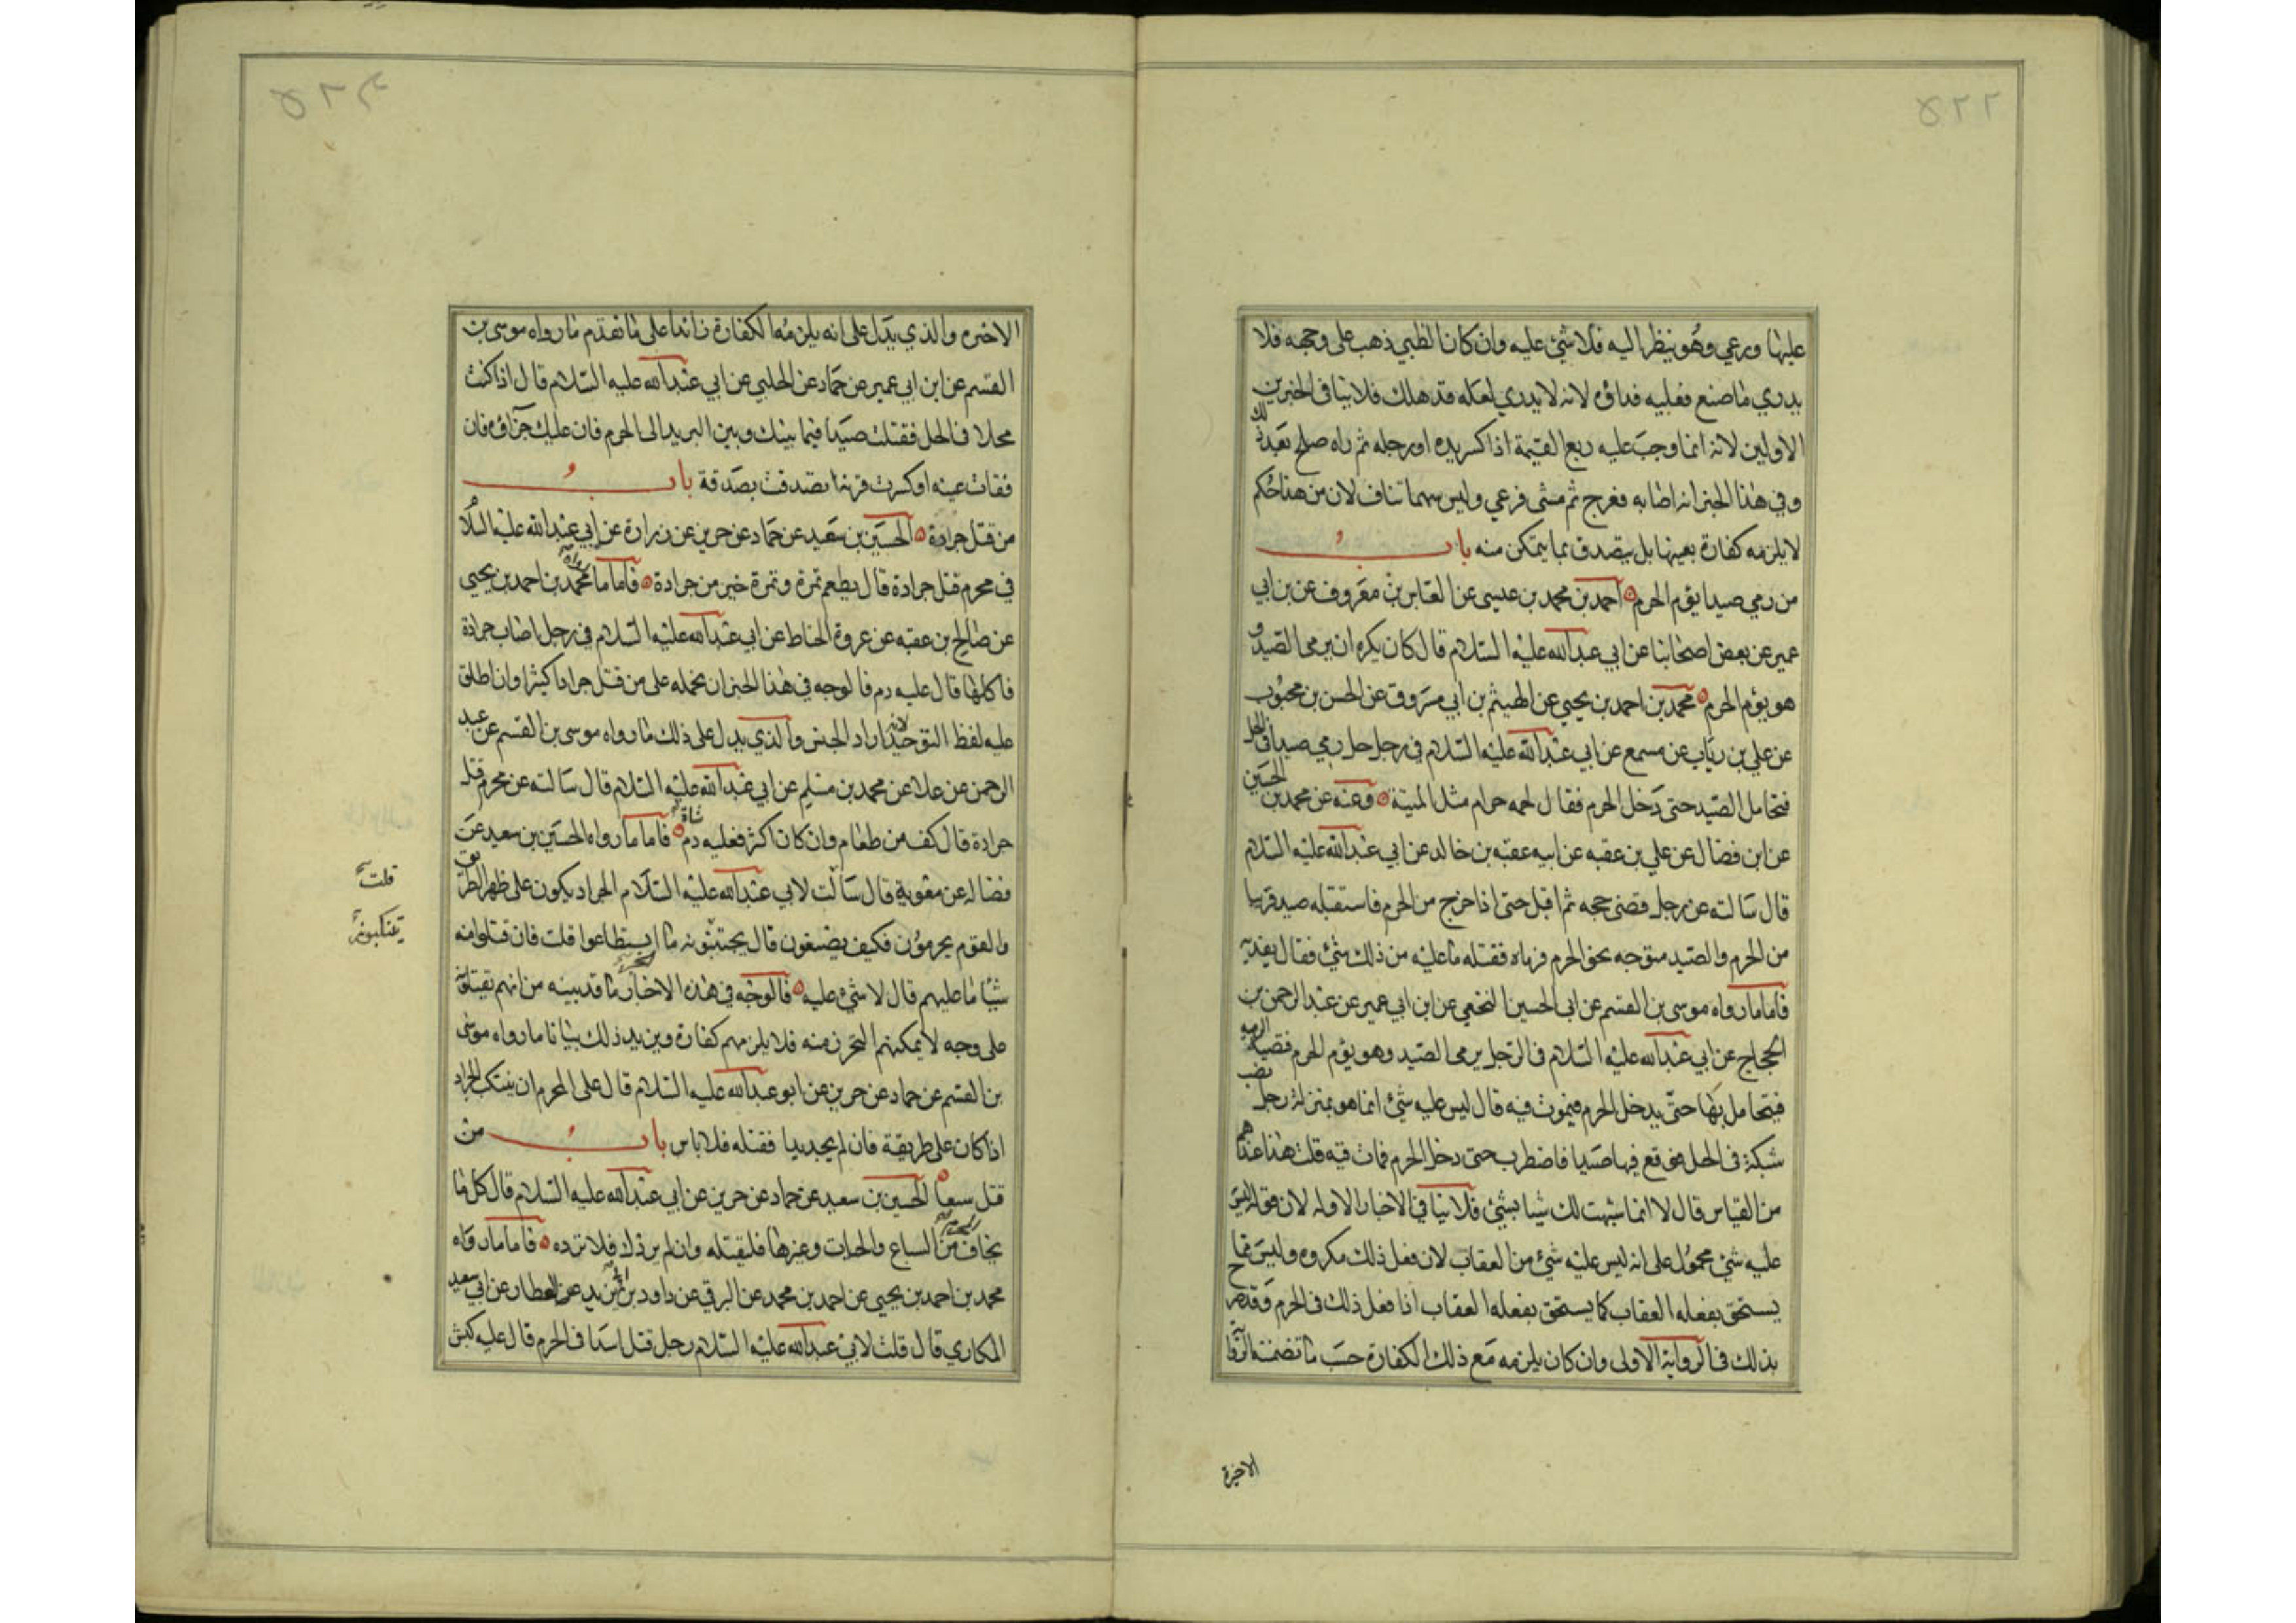 ٥٢٢
عليها ورعي وهو ينظر اليه فلا شئ عليه وان كان الظبي ذهب على وجهه فلا
يدري ما صنع فعليه فداؤه لانه لا يدري لعله قد هلك فلا ينافي الخبرين
الاولين لانه انما وجب عليه ربع القيمة اذا كسر يده او رجله ثم راه صلح بعد ذلك
وفي هذا الخبر انه اصابه فعرج ثم مشى فرعي وليس بينهما تناف لان من هذا حكمه
لا يلزمه كفارة بعينها بل يتصدق بما يتمكن منه باب
من رمى صيدا يؤم الحرم احمد بن محمد بن عيسى عن العباس بن معروف عن بن ابي
عمير عن بعض اصحابنا عن ابي عبد الله عليه السلام قال كان يكره ان يرمى الصيد و
هو يؤم الحرم محمد بن احمد بن يحيى عن الهيثم بن ابي مسروق عن الحسن بن محبوب
عن علي بن رياب عن مسمع عن ابي عبد الله عليه السلام في رجل حل رمى صيدا في الحل
فتحامل الصيد حتى دخل الحرم فقال لحمه حرام مثل الميتة وعنه عن محمد بن الحسين
عن ابن فضال عن علي بن عقبه عن ابيه عقبه بن خالد عن ابي عبد الله عليه السلام
قال سالته عن رجل قضى حجه ثم اقبل حتى اذا خرج من الحرم فاستقبله صيد قريبا
من الحرم والصيد متوجه نحو الحرم فرماه فقتله ما عليه من ذلك شئ فقال يفديه
فاما ما رواه موسى بن القسم عن ابي الحسين النخعي عن ابن ابي عمير عن عبد الرحمن بن
الحجاج عن ابي عبد الله عليه السلام في الرجل يرمى الصيد وهو يؤم الحرم فتصيبه الرمية
فيتحامل بها حتى يدخل الحرم فيموت فيه قال ليس عليه شئ انما هو بمنزلة رجل نصب
شبكة في الحل فوقع فيها صيد فاضطرب حتى دخل الحرم فمات فيه قلت هذا عندهم
من القياس قال لا انما شبهت لك شيا بشئ فلا ينافي الاخبار الاوله لان قوله ليس
عليه شئ محمول على انه ليس عليه شئ من العقاب لان فعل ذلك مكروه وليس مما
يستحق بفعله العقاب كما يستحق بفعله العقاب اذا فعل ذلك في الحرم وقد صرح
بذلك في الرواية الاولى وان كان يلزمه مع ذلك الكفارة حسب ما تضمنته الروايات
الاخيرة
٥٢٣
الاخيره والذي يدل على انه يلزمه الكفارة زائدا على ما تقدم ما رواه موسى بن
القسم عن ابن ابي عمير عن حماد عن الحلبي عن ابي عبد الله عليه السلام قال اذا كنت
محلا في الحل فقتلت صيدا فيما بينك وبين البريد الى الحرم فان عليك جزاؤه فان
فقات عينه او كسرت قرنه تصدقت بصدقة باب
من قتل جرادة الحسين بن سعيد عن حماد عن حريز عن زرارة عن ابي عبد الله عليه السلام
في محرم قتل جرادة قال يطعم تمرة وتمرة خير من جرادة فاما ما رواه محمد بن احمد بن يحيى
عن صالح بن عقبه عن عروة الحناط عن ابي عبد الله عليه السلام في رجل اصاب جرادة
فاكلها قال عليه دم فالوجه في هذا الخبر ان نحمله على من قتل جرادا كثيرا وان اطلق
عليه لفظ التوحيد لانه اراد الجنس والذي يدل على ذلك ما رواه موسى بن القسم عن عبد
الرحمن عن علا عن محمد بن مسلم عن ابي عبد الله عليه السلام قال سالته عن محرم قتل
جرادة قال كف من طعام وان كان اكثر فعليه دم شاة فاما ما رواه الحسين بن سعيد عن
فضاله عن معوية قال سالت لابي عبد الله عليه السلام الجراد يكون على ظهر الطريق
والقوم محرمون فكيف يصنعون قال يجتنبونه ما استطاعوا قلت فان قتلوا منه
شيا ما عليهم قال لا شئ عليه فالوجه في هذه الاخبار ما قد بينه من انهم يقتلونه
على وجه لا يمكنهم التحرز منه فلا يلزمهم كفارة ويزيد ذلك بيانا ما رواه موسى
بن القسم عن حماد عن حريز عن ابو عبد الله عليه السلام قال على المحرم ان يتنكب الجراد
اذا كان على طريقة فان لم يجد بدا فقتله فلا باس باب من
قتل سبعا الحسين بن سعيد عن حماد عن حريز عن ابي عبد الله عليه السلام قال كل ما
يخاف المحرم من السباع والحيات وغيرها فليقتله وان لم يردك فلا ترده فاما ما رواه
محمد بن احمد بن يحيى عن احمد بن محمد عن البرقي عن داود بن ابي يزيد عن العطار عن ابي سعيد
المكاري قال قلت لابي عبد الله عليه السلام رجل قتل اسدا في الحرم قال عليه كبش
قلت
يتنكبونه